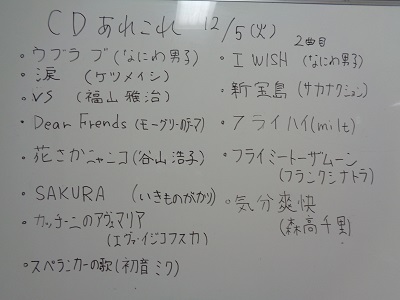 CDあれこれ 12/5(火)
・ウブラブ(なにわ男子)
・涙 (ケツメイシ)
・VS (福山雅治)
・Dear Frends (モーグリーのテーマ)
・花さかニャンコ(谷山浩子)
・SAKURA (いきものがかり)
・カッチーニのアヴェマリア
(エヴァ・イジコフスカ)
・スペランカーの歌(初音ミク)
2曲目
・I WISH (なにわ男子)
・新宝島 (サカナクション)
・フライハイ(milt)
・フライミートーザムーン
(フランクシナトラ)
・気分爽快
(森高千里)